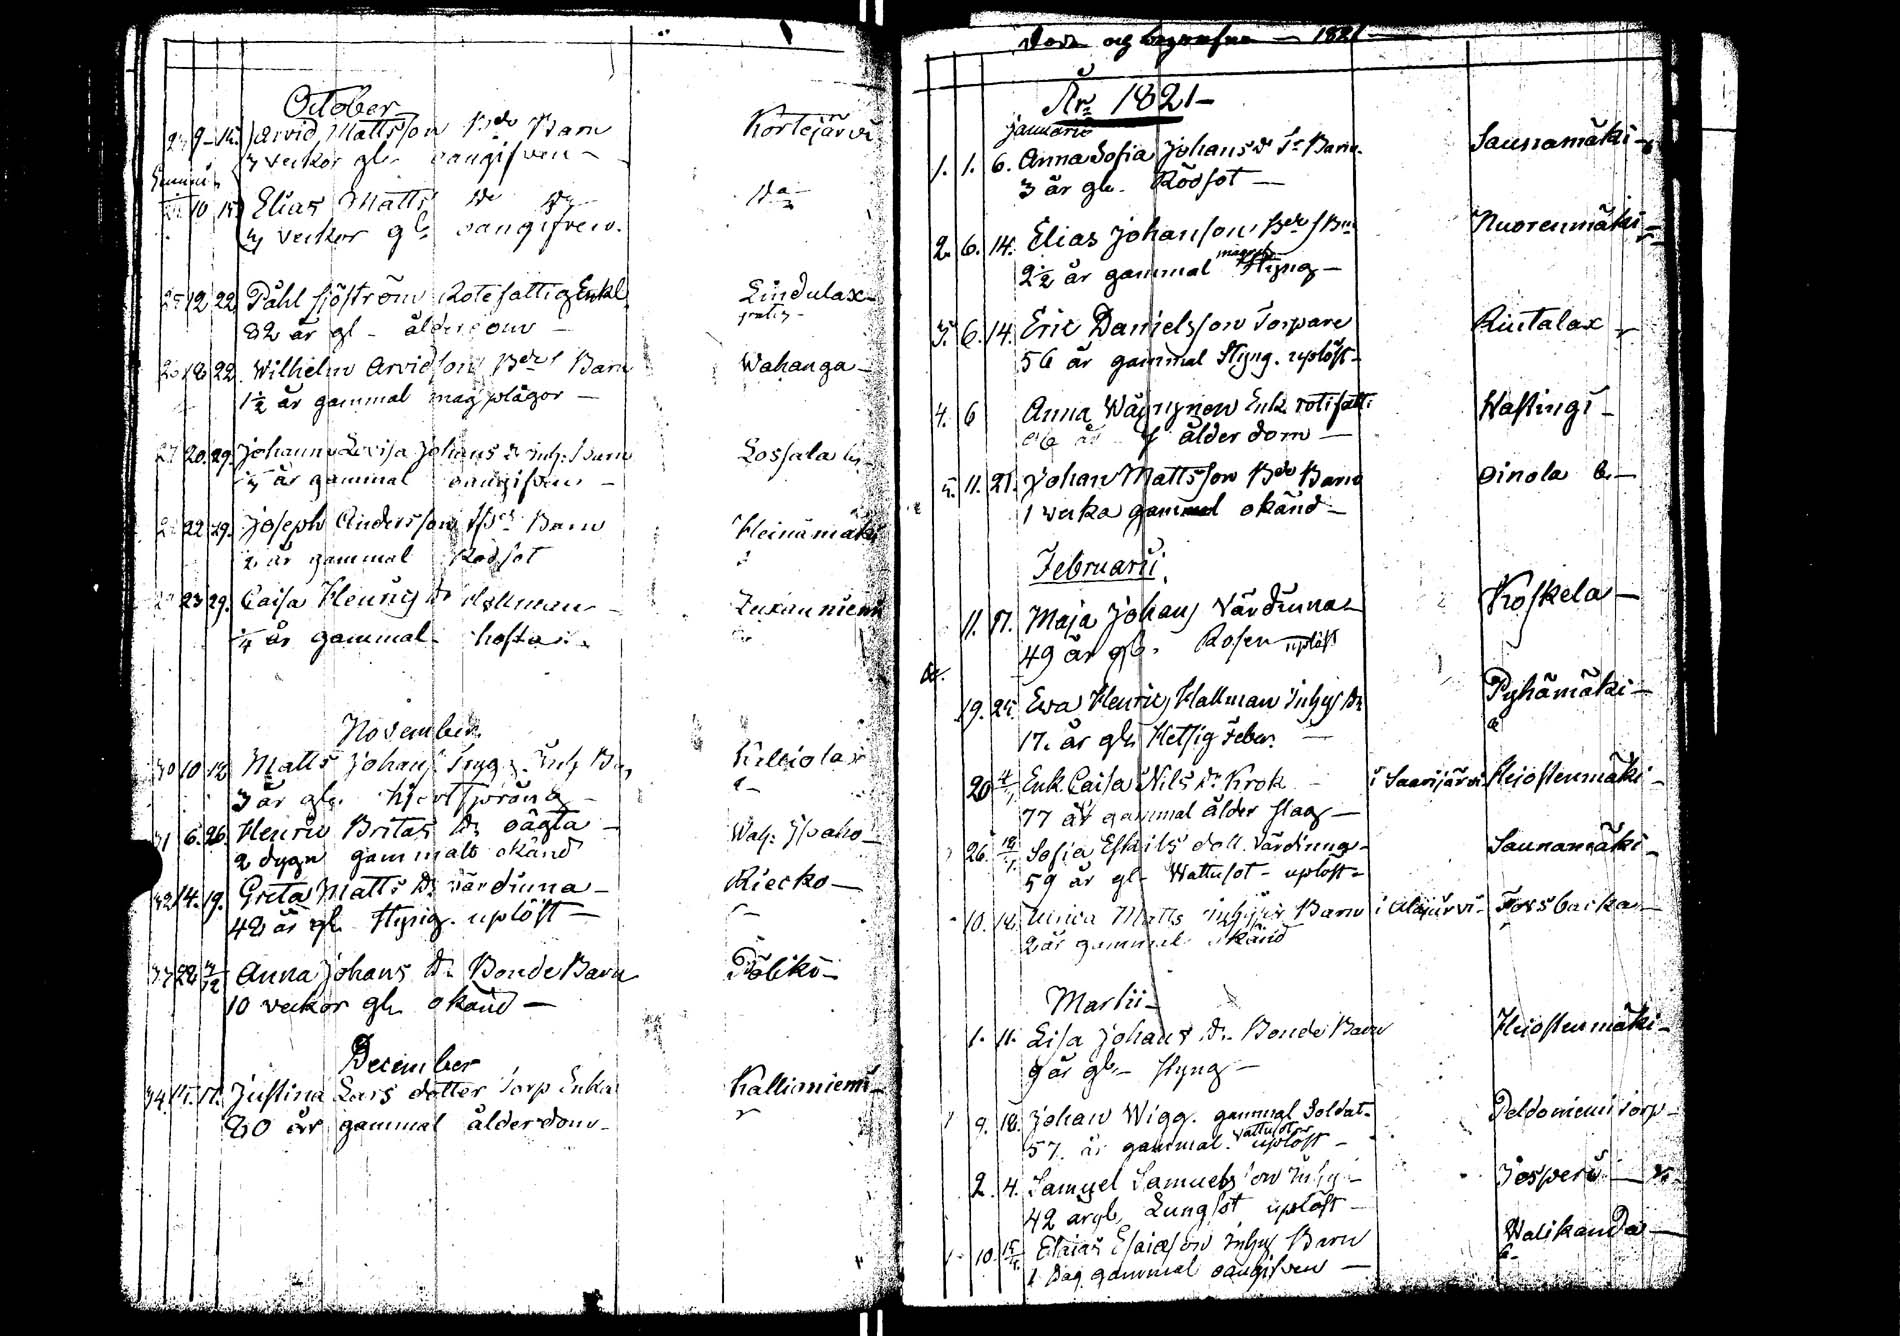 October
9 14. Arvid Mattsson Bde Barn Kortejärvi
3 veckor gl. oangifven -
10 15 Elias Matts
3 veckor gl. oangifven.
25 12 22 Påhl Sjöström Rotefattig Enkl. Lindulax
82 år gl - ålderdom -
26 18 22. Wilhelm Arvidson Bde Barn Wahanga -
1½ år gammal magplågor -
27 20. 29. Johanna Lovisa Johans dr Inh: Barn Lossala
år gammal oangifven -
22 29. Joseph Andersson Barn Heinämäki
2 år gammal Rödsot
23 29. Caisa Henrics dr Hallman -
¼ år gammal - hosta
November
30 10 12 Matts Johans
3 år gl. hjertsprång -
31 6. 26. Henric Britas oägta -
2 dygn gammalt okänd
32 14. 19. Greta Matts dr värdinna - Riecko -
42 år gl. Styng. uplöst -
33 22 3/12 Anna Johans dr Bonde Barn Pölkki -
10 veckor gl. okänd -
December
34 15. 17. Justina Lars dotter Torp Enka Kallioniemi -
80 år gammal ålderdom -
Döde og begrafne - 1821
År 1821 -
Januarii
1. 1. 6. Anna Sofia Johans dr Barn. Saunamäki -
3 år gl. Rödsot -
2. 6. 14. Elias Johanson Bde Nuorenmäki
2½ år gammal Styng -
3. 6. 14. Eric Danielsson Torpare Rintalax
56 år gammal Styng. uplöst -
4. 6 Anna Enk. rotefatt: Hastingi -
år ålderdom -
5. 11. 21. Johan Mattsson Bde Barn Oinola -
1 vecka gammal okänd -
Februarii
11. 17. Maja Johans värdinna Koskela -
49 år gl. Rosen uplöst
19. 25. Ewa Henrics Hallman Inhys Dr Pyhämäki -
17. år gl. Hetsig Feber. -
20 4/1 Enk. Caisa Nils dr Krok i Saarijärvi Heiostenmäki -
77 år gammal ålder slag -
26. 18/1 Sofia Eskils dott. värdinna - Saunamäki -
59 år gl - Wattusot - uplöst -
10. 18. Ulrica Matts Inhys Barn i Alajärvi - Forsbacka -
2 år gammal okänd
Martii -
1. 11. Lisa Johans dr. Bonde Barn Heiostenmäki -
9 år gl - Styng -
9. 18. Johan Wigg. gammal Soldat - Peldoniemi torp -
57. år gammal. Wattusot uplöst -
2. 4. Samuel Samuelsson Inhys - Josperi -
42 år gl. Lungsot uplöst -
10. 15/4 Esaias Esaiason Inhys Barn Walikanda -
1 dag gammal oangifven -